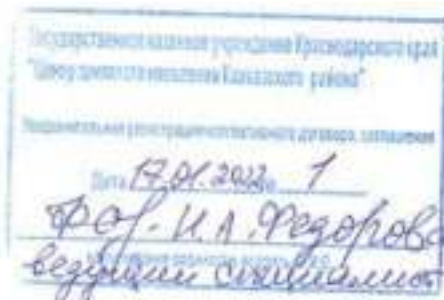 Государственное казенное учреждение Краснодарского края
"Центр занятости населения Кавказского района"
Уведомительная регистрация коллективного договора, соглашения
Дата 17.01.2022 № 1
И.А. Федорова
ведущий специалист